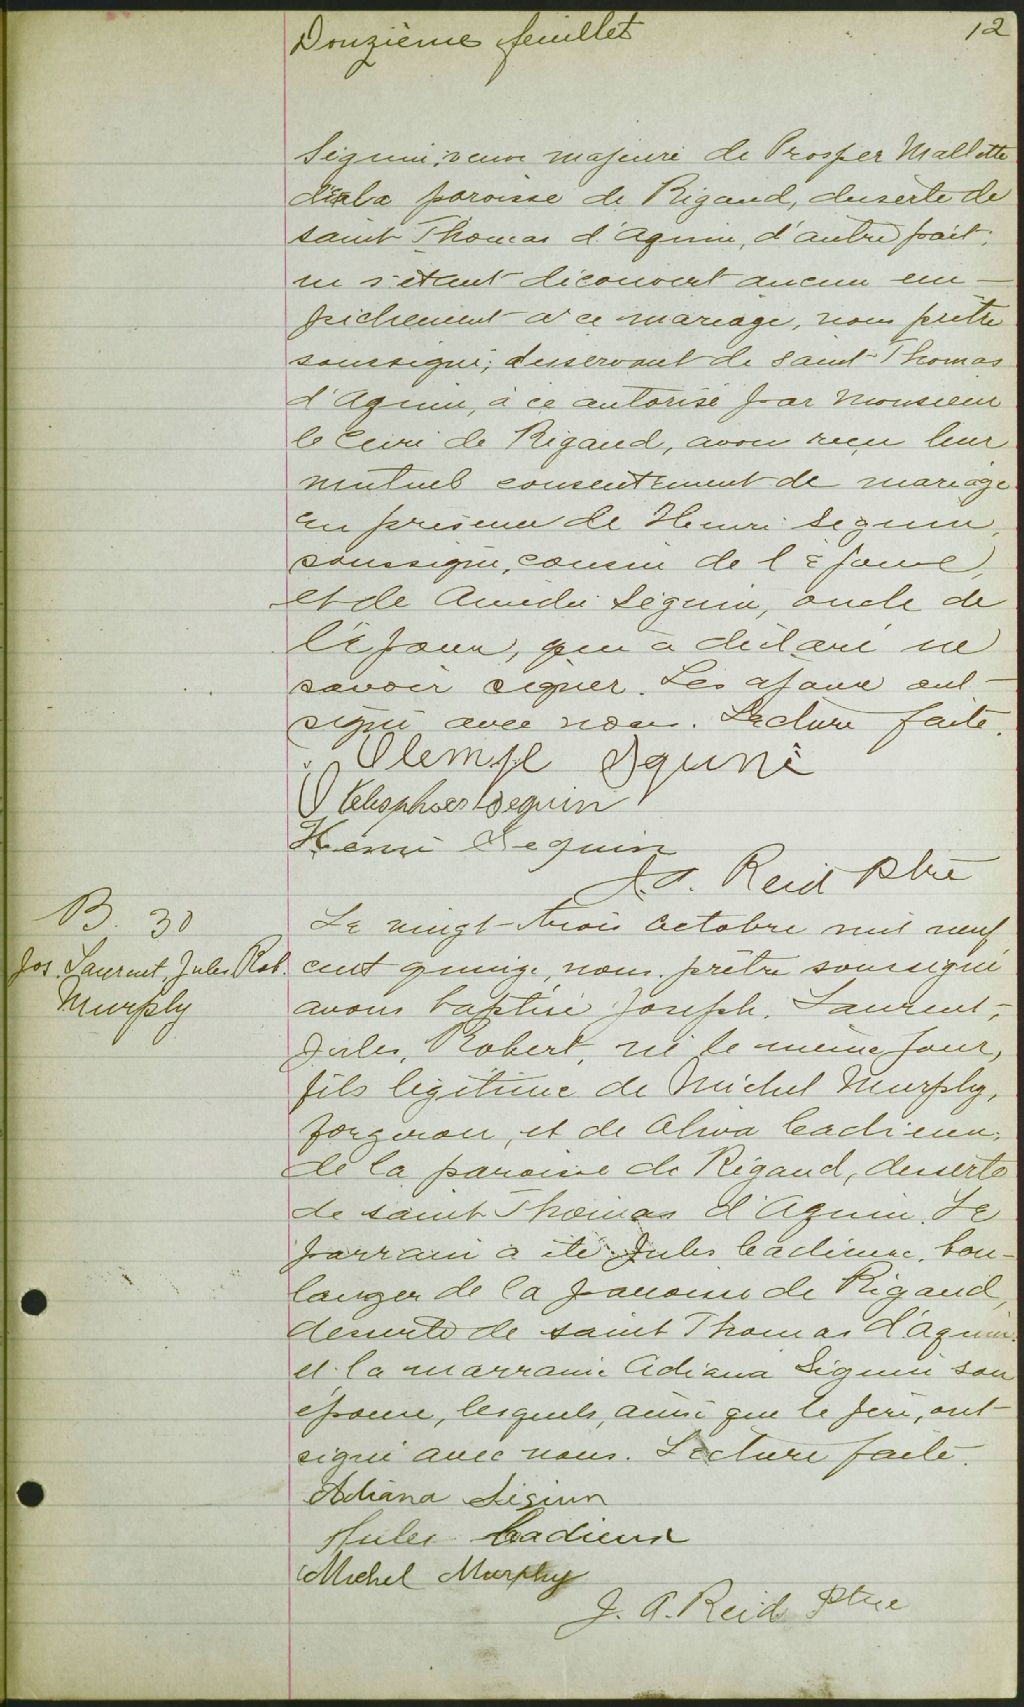 Douzième feuillet 12
Séguin, veuve majeure de Prosper Mallette
de la paroisse de Rigaud, desserte de
saint Thomas d'Aquin, d'autre part;
ne s'étant découvert aucun em-
pêchement à ce mariage, nous prêtre
soussigné, desservant de saint-Thomas
d'Aquin, à ce autorisé par Monsieur
le Curé de Rigaud, avons reçu leur
mutuel consentement de mariage
en présence de Henri Séguin,
soussigné, cousin de l'épouse,
et de Amédée Séguin, oncle de
l'époux, qui a déclaré ne
savoir signer. Les époux ont
signé avec nous. Lecture faite.
Olempe Sguni
Télesphore Seguin
Henri Seguin
J. A. Reid Ptre
B. 30
Jos. Laurent, Jules Rob.
Murphy
Le vingt-trois octobre mil neuf
cent quinze, nous prêtre soussigné
avons baptisé Joseph, Laurent,
Jules, Robert, né le même jour,
fils légitime de Michel Murphy,
forgeron, et de Oliva Cadieux,
de la paroisse de Rigaud, desserte
de saint Thomas d'Aquin. Le
parrain a été Jules Cadieux, bou-
langer de la paroisse de Rigaud,
desserte de saint Thomas d'Aquin
et la marraine Adiana Séguin son
épouse, lesquels, ainsi que le père, ont
signé avec nous. Lecture faite.
Adiana Séguin
Jules Cadieux
Michel Murphy
J. A. Reid Ptre